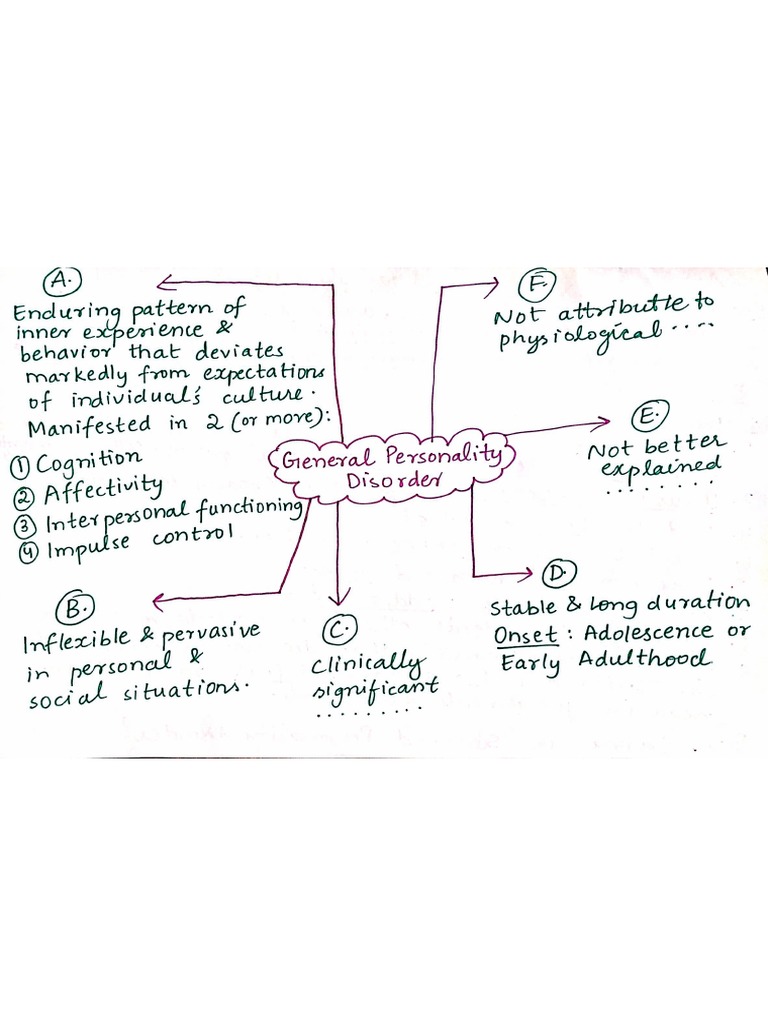 A.
Enduring pattern of
inner experience &
behavior that deviates
markedly from expectations
of individual's culture.
Manifested in 2 (or more):
① Cognition
② Affectivity
③ Interpersonal functioning
④ Impulse control
General Personality
Disorder
F.
Not attributle to
physiological....
E.
Not better
explained
........
B.
Inflexible & pervasive
in personal &
social situations.
C.
Clinically
significant
.........
D.
Stable & long duration
Onset: Adolescence or
Early Adulthood